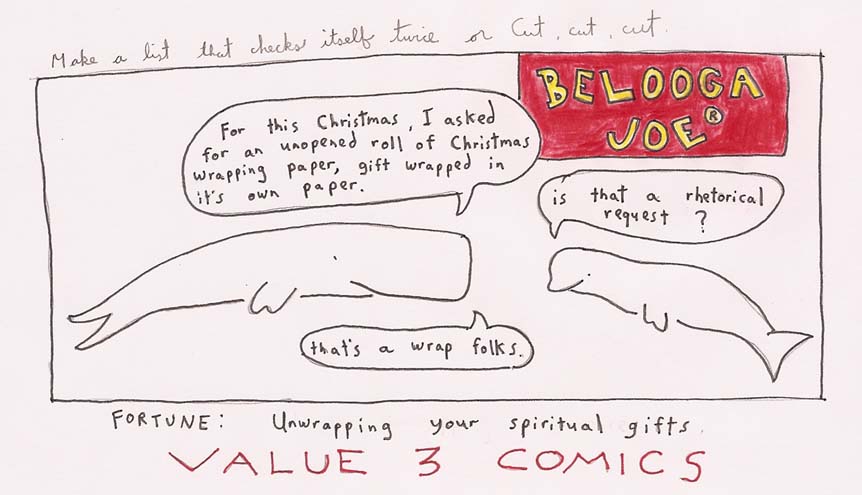 Make a list that checks itself twice or Cut, cut, cut.
BELOOGA
JOE®
For this Christmas, I asked
for an unopened roll of Christmas
wrapping paper, gift wrapped in
it's own paper.
is that a rhetorical
request ?
that's a wrap folks.
FORTUNE: Unwrapping your spiritual gifts.
VALUE 3 COMICS